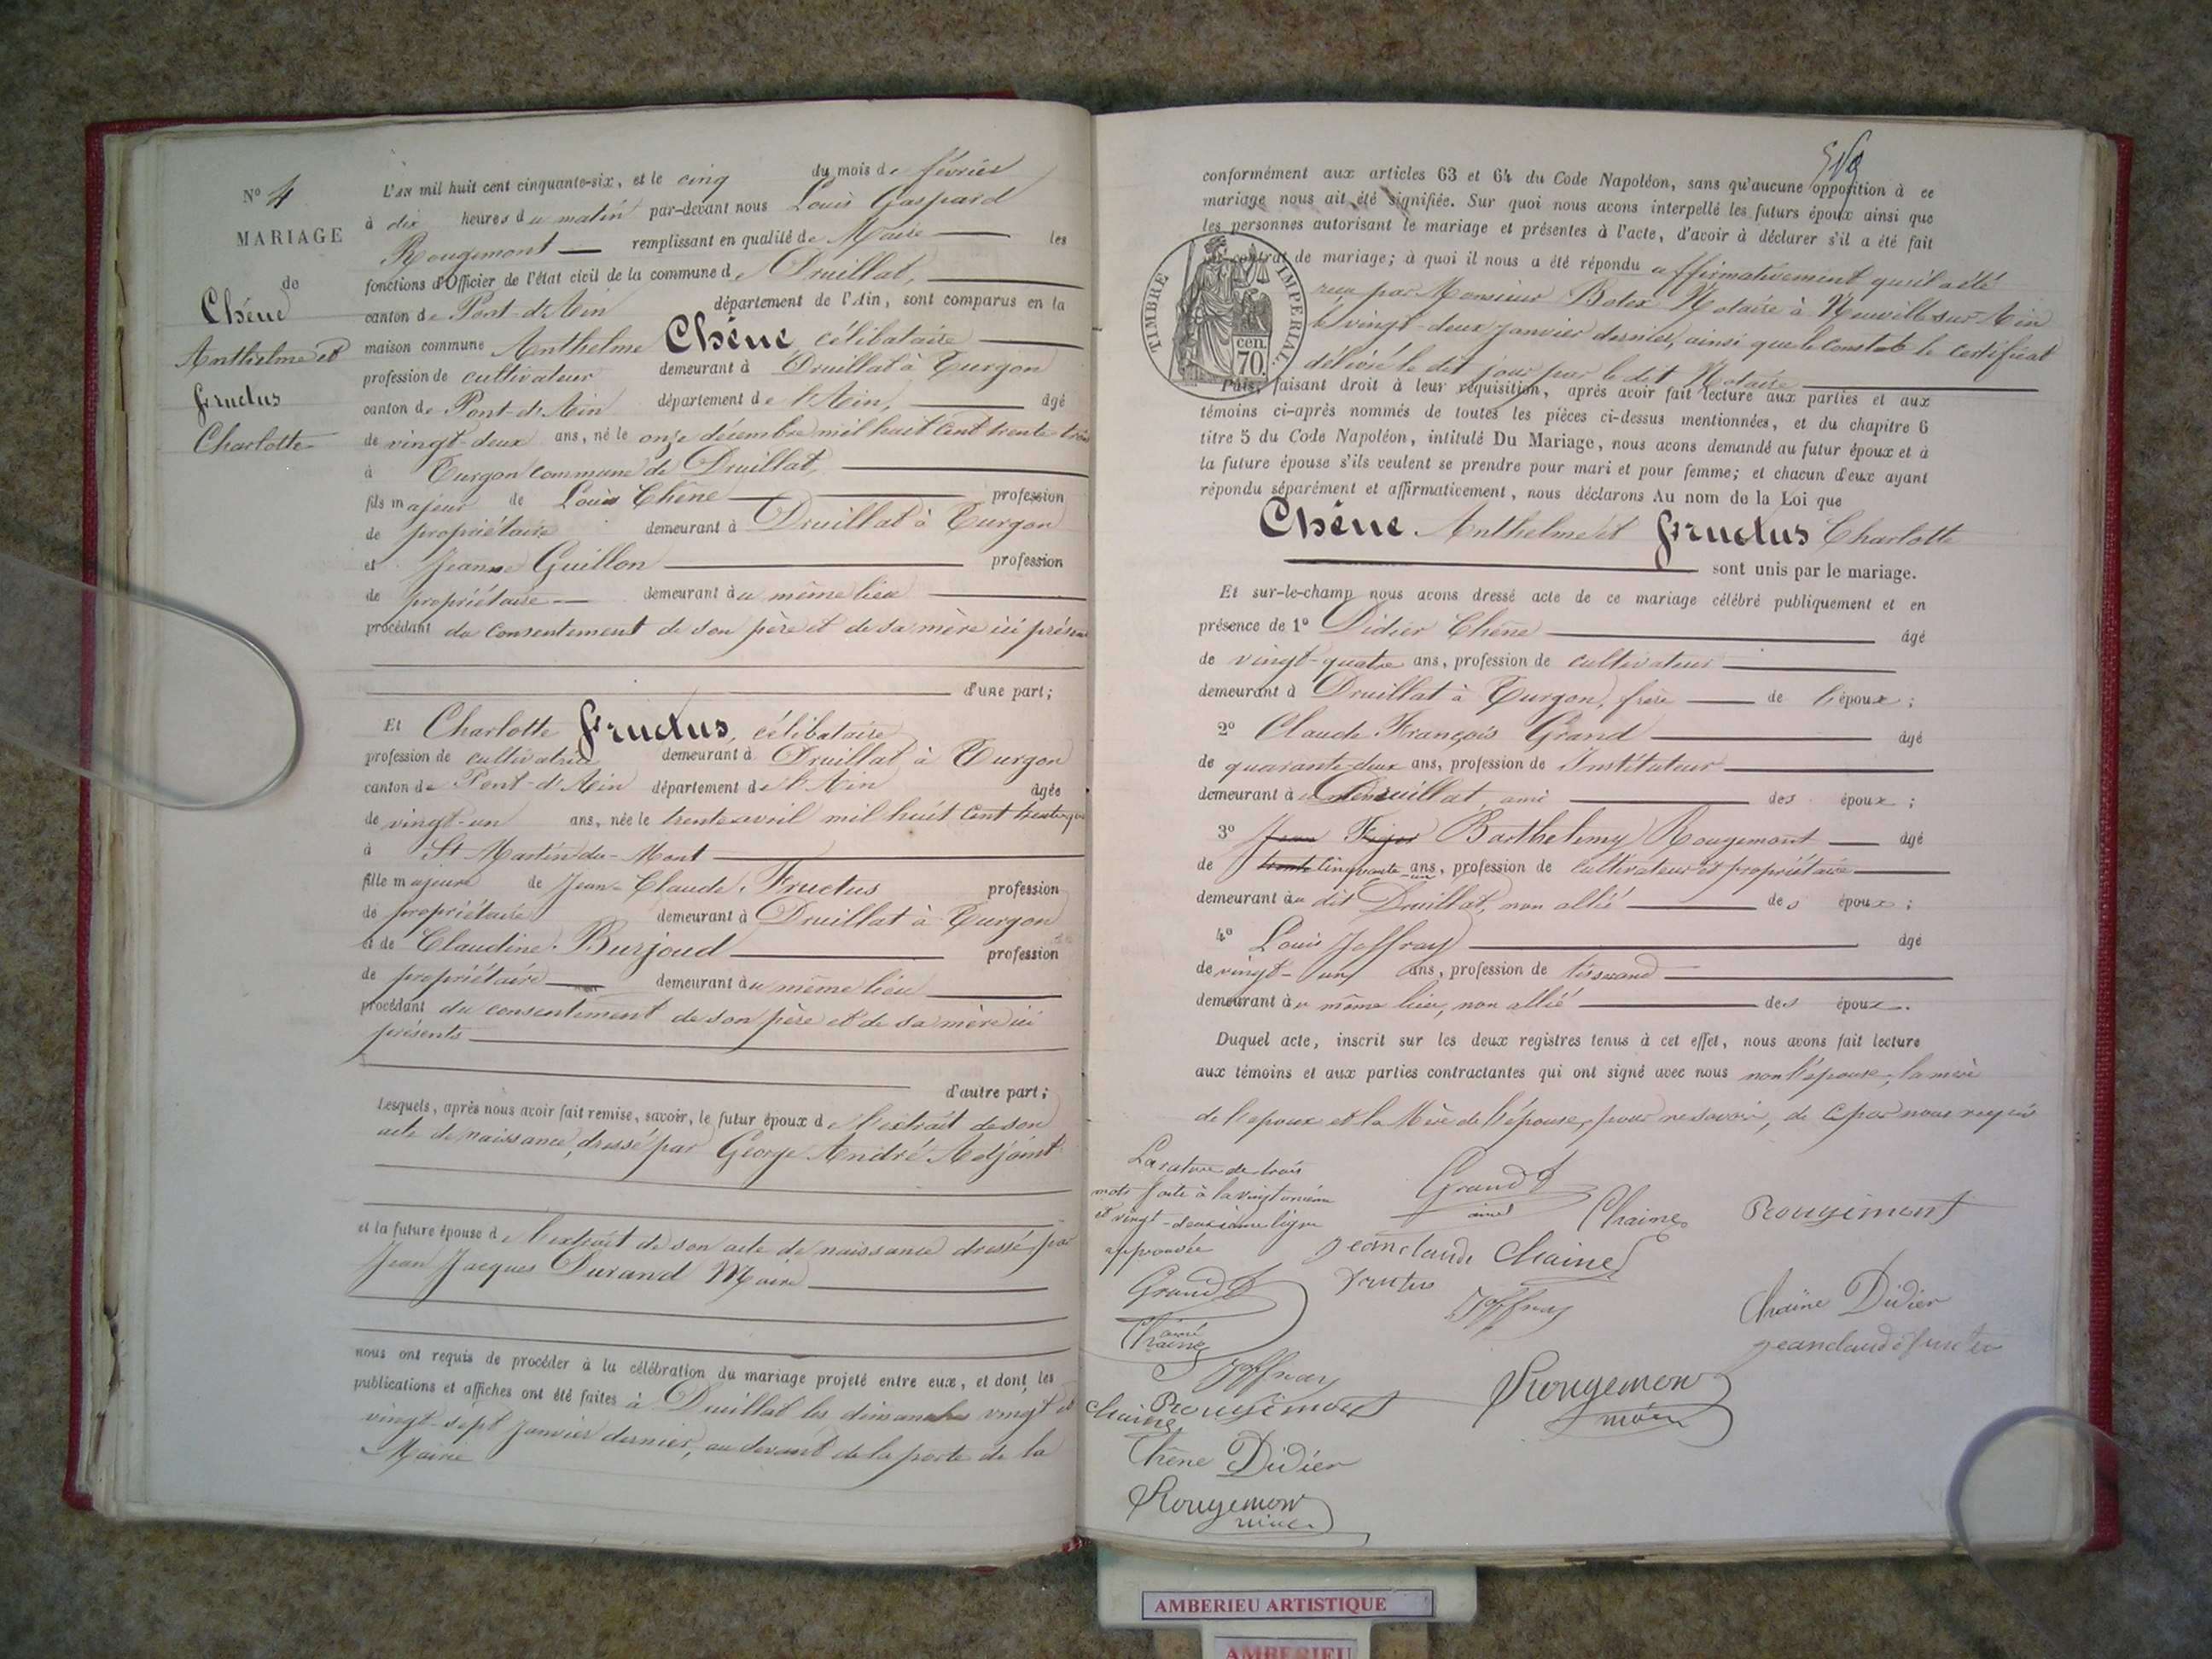 N° 4
MARIAGE
de
Chêne
Anthelme et
Fructus
Charlotte
L'AN mil huit cent cinquante-six, et le cinq du mois de février
à dix heures du matin par-devant nous Louis Gaspard
Rougemont remplissant en qualité de Maire les
fonctions d'Officier de l'état civil de la commune de Druillat,
canton de Pont-d'Ain département de l'Ain, sont comparus en la
maison commune Anthelme Chêne célibataire
profession de cultivateur demeurant à Druillat à Turgon
canton de Pont-d'Ain département de l'Ain, âgé
de vingt-deux ans, né le onze décembre mil huit cent trente trois
à Turgon commune de Druillat,
fils majeur de Louis Chêne profession
de propriétaire demeurant à Druillat à Turgon
et Jeanne Guillon profession
de propriétaire demeurant au même lieu
procédant du consentement de son père et de sa mère ici présens
d'une part;
Et Charlotte Fructus, célibataire
profession de cultivatrice demeurant à Druillat à Turgon
canton de Pont-d'Ain département de l'Ain âgée
de vingt-un ans, née le trente avril mil huit cent trente
à St Martin-du-Mont
fille majeure de Jean-Claude Fructus profession
de propriétaire demeurant à Druillat à Turgon
et de Claudine Burjoud profession
de propriétaire demeurant au même lieu
procédant du consentement de son père et de sa mère ici
présents
d'autre part;
Lesquels, après nous avoir fait remise, savoir, le futur époux de l'extrait de son
acte de naissance, dressé par George André Adjoint
et la future épouse de l'extrait de son acte de naissance dressé par
Jean Jacques Durand Maire
nous ont requis de procéder à la célébration du mariage projeté entre eux, et dont les
publications et affiches ont été faites à Druillat les dimanches vingt et
vingt-sept janvier dernier, au devant de la porte de la
Mairie
conformément aux articles 63 et 64 du Code Napoléon, sans qu'aucune opposition à ce
mariage nous ait été signifiée. Sur quoi nous avons interpellé les futurs époux ainsi que
les personnes autorisant le mariage et présentes à l'acte, d'avoir à déclarer s'il a été fait
contrat de mariage; à quoi il nous a été répondu affirmativement qu'il a été
reçu par Monsieur Bolex Notaire à Neuville sur Ain
le vingt-deux janvier dernier, ainsi que le constate le certificat
délivré le dit jour par le dit Notaire
TIMBRE IMPERIAL
cen.
70.
Puis, faisant droit à leur réquisition, après avoir fait lecture aux parties et aux
témoins ci-après nommés de toutes les pièces ci-dessus mentionnées, et du chapitre 6
titre 5 du Code Napoléon, intitulé Du Mariage, nous avons demandé au futur époux et à
la future épouse s'ils veulent se prendre pour mari et pour femme; et chacun d'eux ayant
répondu séparément et affirmativement, nous déclarons Au nom de la Loi que
Chêne Anthelme et Fructus Charlotte
sont unis par le mariage.
Et sur-le-champ nous avons dressé acte de ce mariage célébré publiquement et en
présence de 1° Didier Chêne âgé
de vingt-quatre ans, profession de cultivateur
demeurant à Druillat à Turgon, frère de l'époux;
2° Claude François Grand âgé
de quarante-deux ans, profession de Instituteur
demeurant à Druillat, ami des époux;
3° Jean Barthelemy Rougemont âgé
de trente cinquante-un ans, profession de cultivateur et propriétaire
demeurant au dit Druillat, non allié des époux;
4° Louis Joffray âgé
de vingt-un ans, profession de tisserand
demeurant au même lieu, non allié des époux.
Duquel acte, inscrit sur les deux registres tenus à cet effet, nous avons fait lecture
aux témoins et aux parties contractantes qui ont signé avec nous non l'épouse, la mère
de l'époux et la Mère de l'épouse, pour ne savoir, de ce par nous requis
La rature de trois
mots faite à la vingt unième
et vingt-deuxième ligne
approuvée
Grand
aimé
Chaine
Rougimont
jeanclaude Chaine
Grand
aimé
Joffray
Chaine Didier
Chaine
jeanclaude
Joffray
Rougemon
maire
Chaine
Rougimont
Chêne Didier
Rougemon
maire
AMBERIEU ARTISTIQUE
AMBERIEU